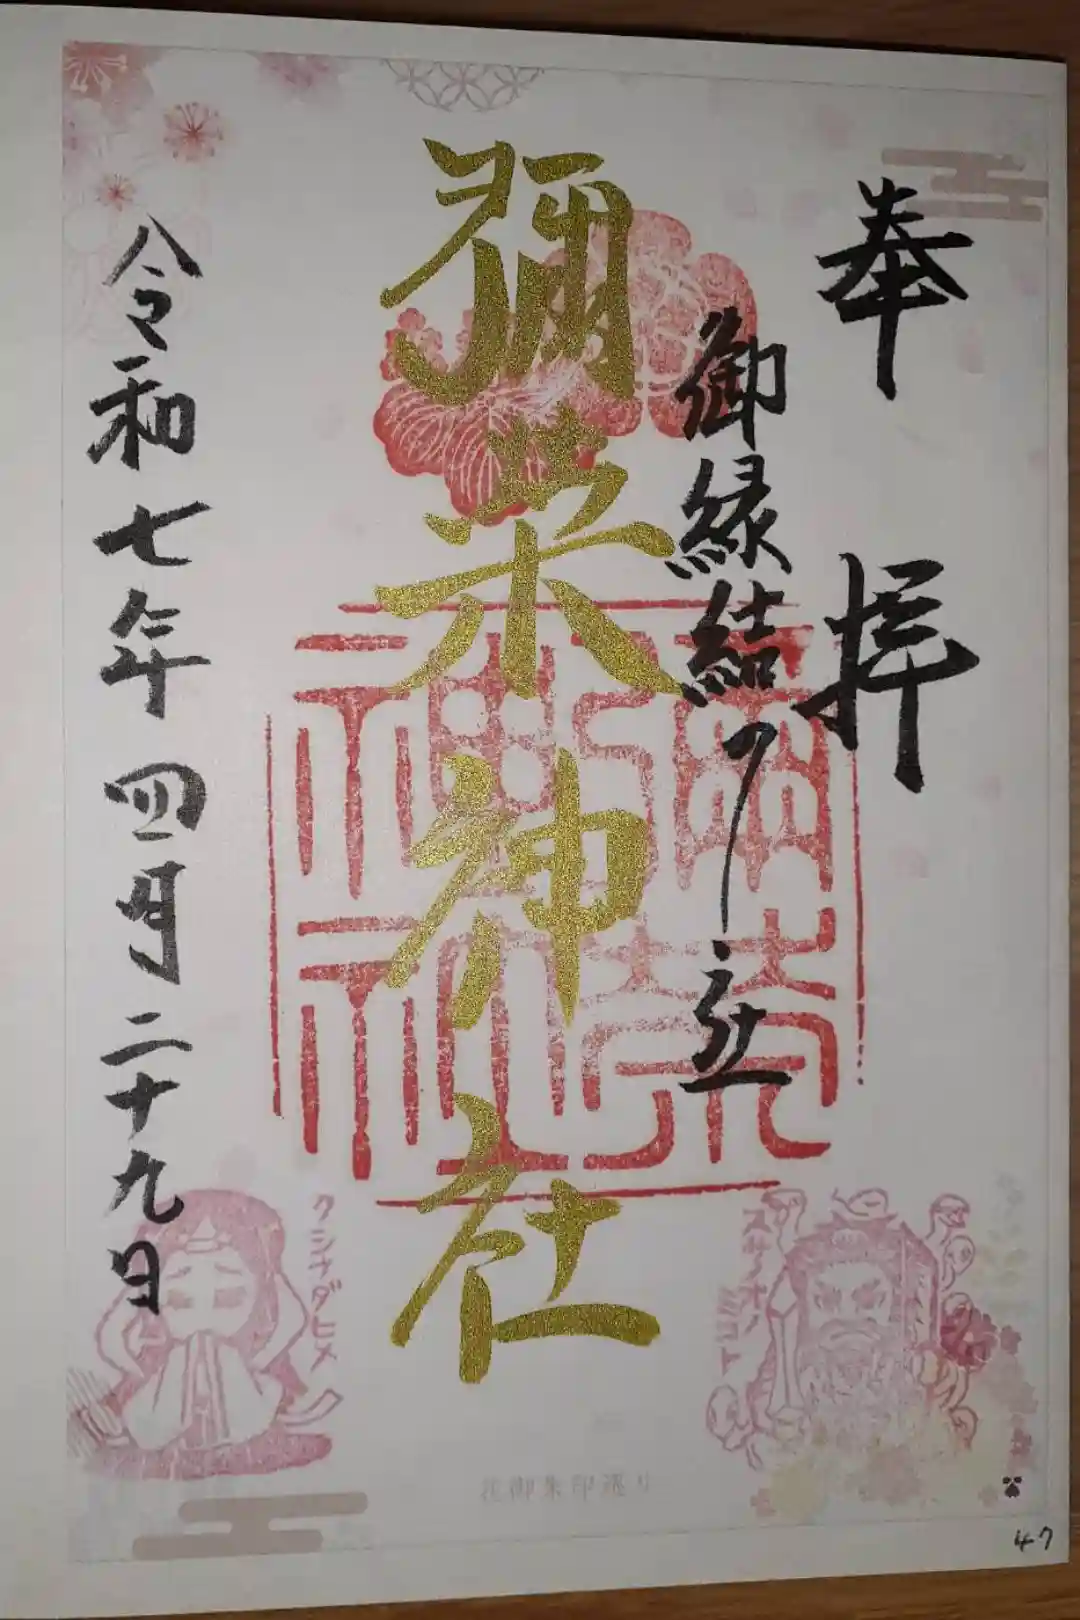 奉拝
御縁結
彌栄神社
彌榮神社
令和七年四月二十九日
スサノオノミコト
クシナダヒメ
花御朱印巡り
47